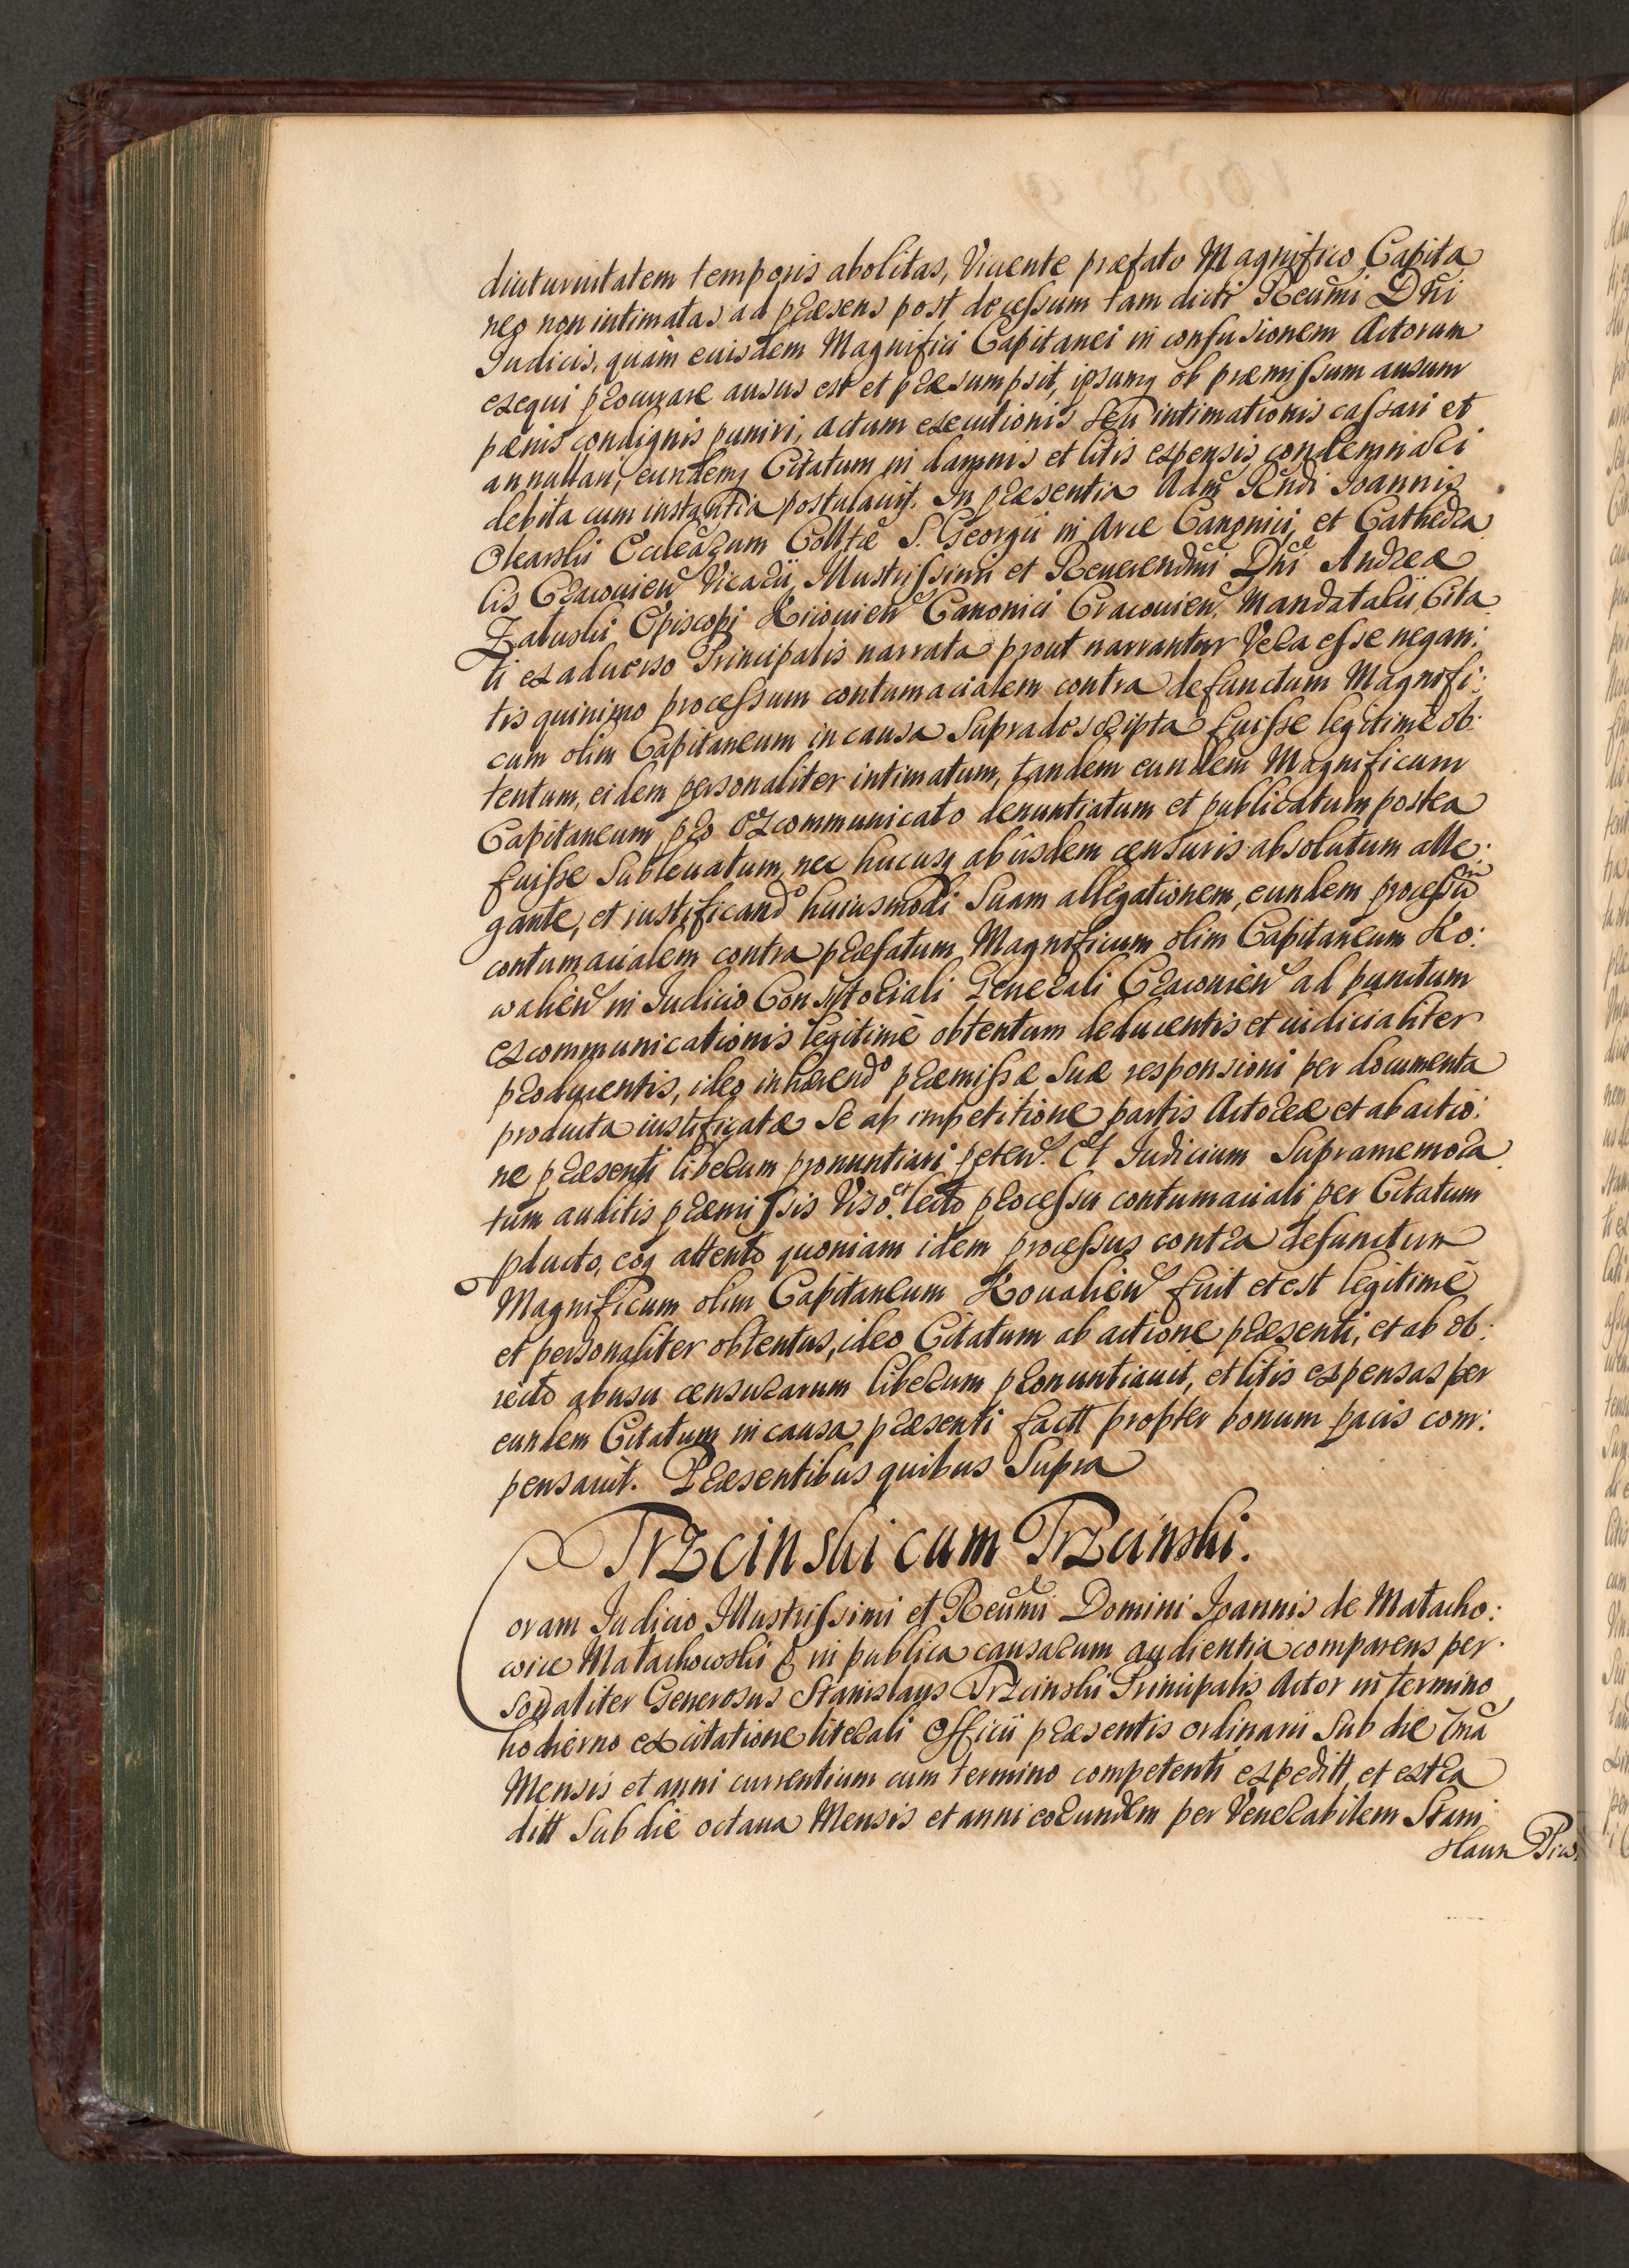 diuturnitatem temporis abolitas, Viuente præfato Magnifico Capita
neo non intimatas ad præsens post decessum tam dicti Reumi Dñi
Iudicis, quàm eiusdem Magnifici Capitanei in confusionem Actorum
exequi procurare ausus est et præsumpsit, ipsumq ob præmissum ausum
pœnis condignis puniri, actum executionis seu intimationis cassari et
annullari, eundemq Citatum in damnis et litis expensis condemnari
debita cum instantia postulauit. In præsentia Adm Rndi Ioannis
Olearski Eccleãrum Colltæ S. Georgii in Arce Canonici, et Cathedra
lis Cracouien Vicarii, Illustrissimi et Reuerendmi Dñi Andreæ
Załuski Episcopi Kiiouien Canonici Cracouien Mandatarii Cita
ti ex aduerso Principalis narrata prout narrantur Vera esse negan:
tis quinimo processum contumacialem contra defunctum Magnifi:
cum olim Capitaneum in causa supradescripta fuisse legitimè ob:
tentum, eidem personaliter intimatum, tandem eundem Magnificum
Capitaneum pro excommunicato denuntiatum et publicatum postea
fuisse subleuatum, nec hucusq ab iisdem censuris absolutum alle:
gante, et iustificando huiusmodi suam allegationem, eundem processũ
contumacialem contra præfatum Magnificum olim Capitaneum Ko:
walien in Iudicio Consistoriali Generali Cracouien ad punctum
excommunicationis legitimè obtentum deducentis et iudicialiter
producentis, ideo inhærendo præmissæ suæ responsioni per documenta
producta iustificatæ se ab impetitione partis Actoreæ et ab actio:
ne præsenti liberum pronuntiari peten. Et Iudicium supramemora
tum auditis præmissis Viso et lecto processu contumaciali per Citatum
pducto, eoq attento quoniam idem processus contra defunctum
Magnificum olim Capitaneum Kowalien fuit et est legitimè
et personaliter obtentus, ideo Citatum ab actione præsenti, et ab ob:
iecto abusu censurarum liberum pronuntiauit, et litis expensas per
eundem Citatum in causa præsenti factt propter bonum pacis com:
pensauit. Præsentibus quibus supra
Trzcinski cum Trzcinski.
Coram Iudicio Illustrissimi et Reuñmi Domini Ioannis de Małacho:
wice Małachowski & in publica causarum audientia comparens per:
sonaliter Generosus Stanislaus Trzcinski Principalis Actor in termino
hodierno ex citatione literali Officii præsentis ordinarii sub die 7mã
Mensis et anni currentium cum termino competenti expeditt, et extra
ditt sub die octaua Mensis et anni eorundem per Venerabilem Stani
slaum